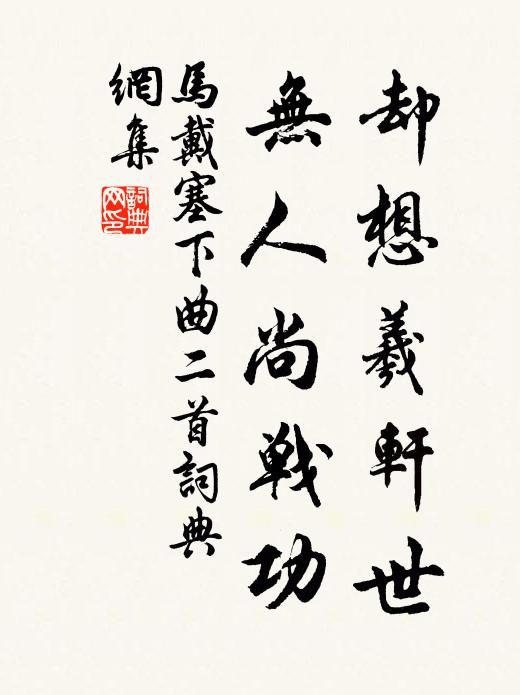 却想羲軒世
無人尚戰功
馬戴塞下曲二首詞典
網集
詞典
网印